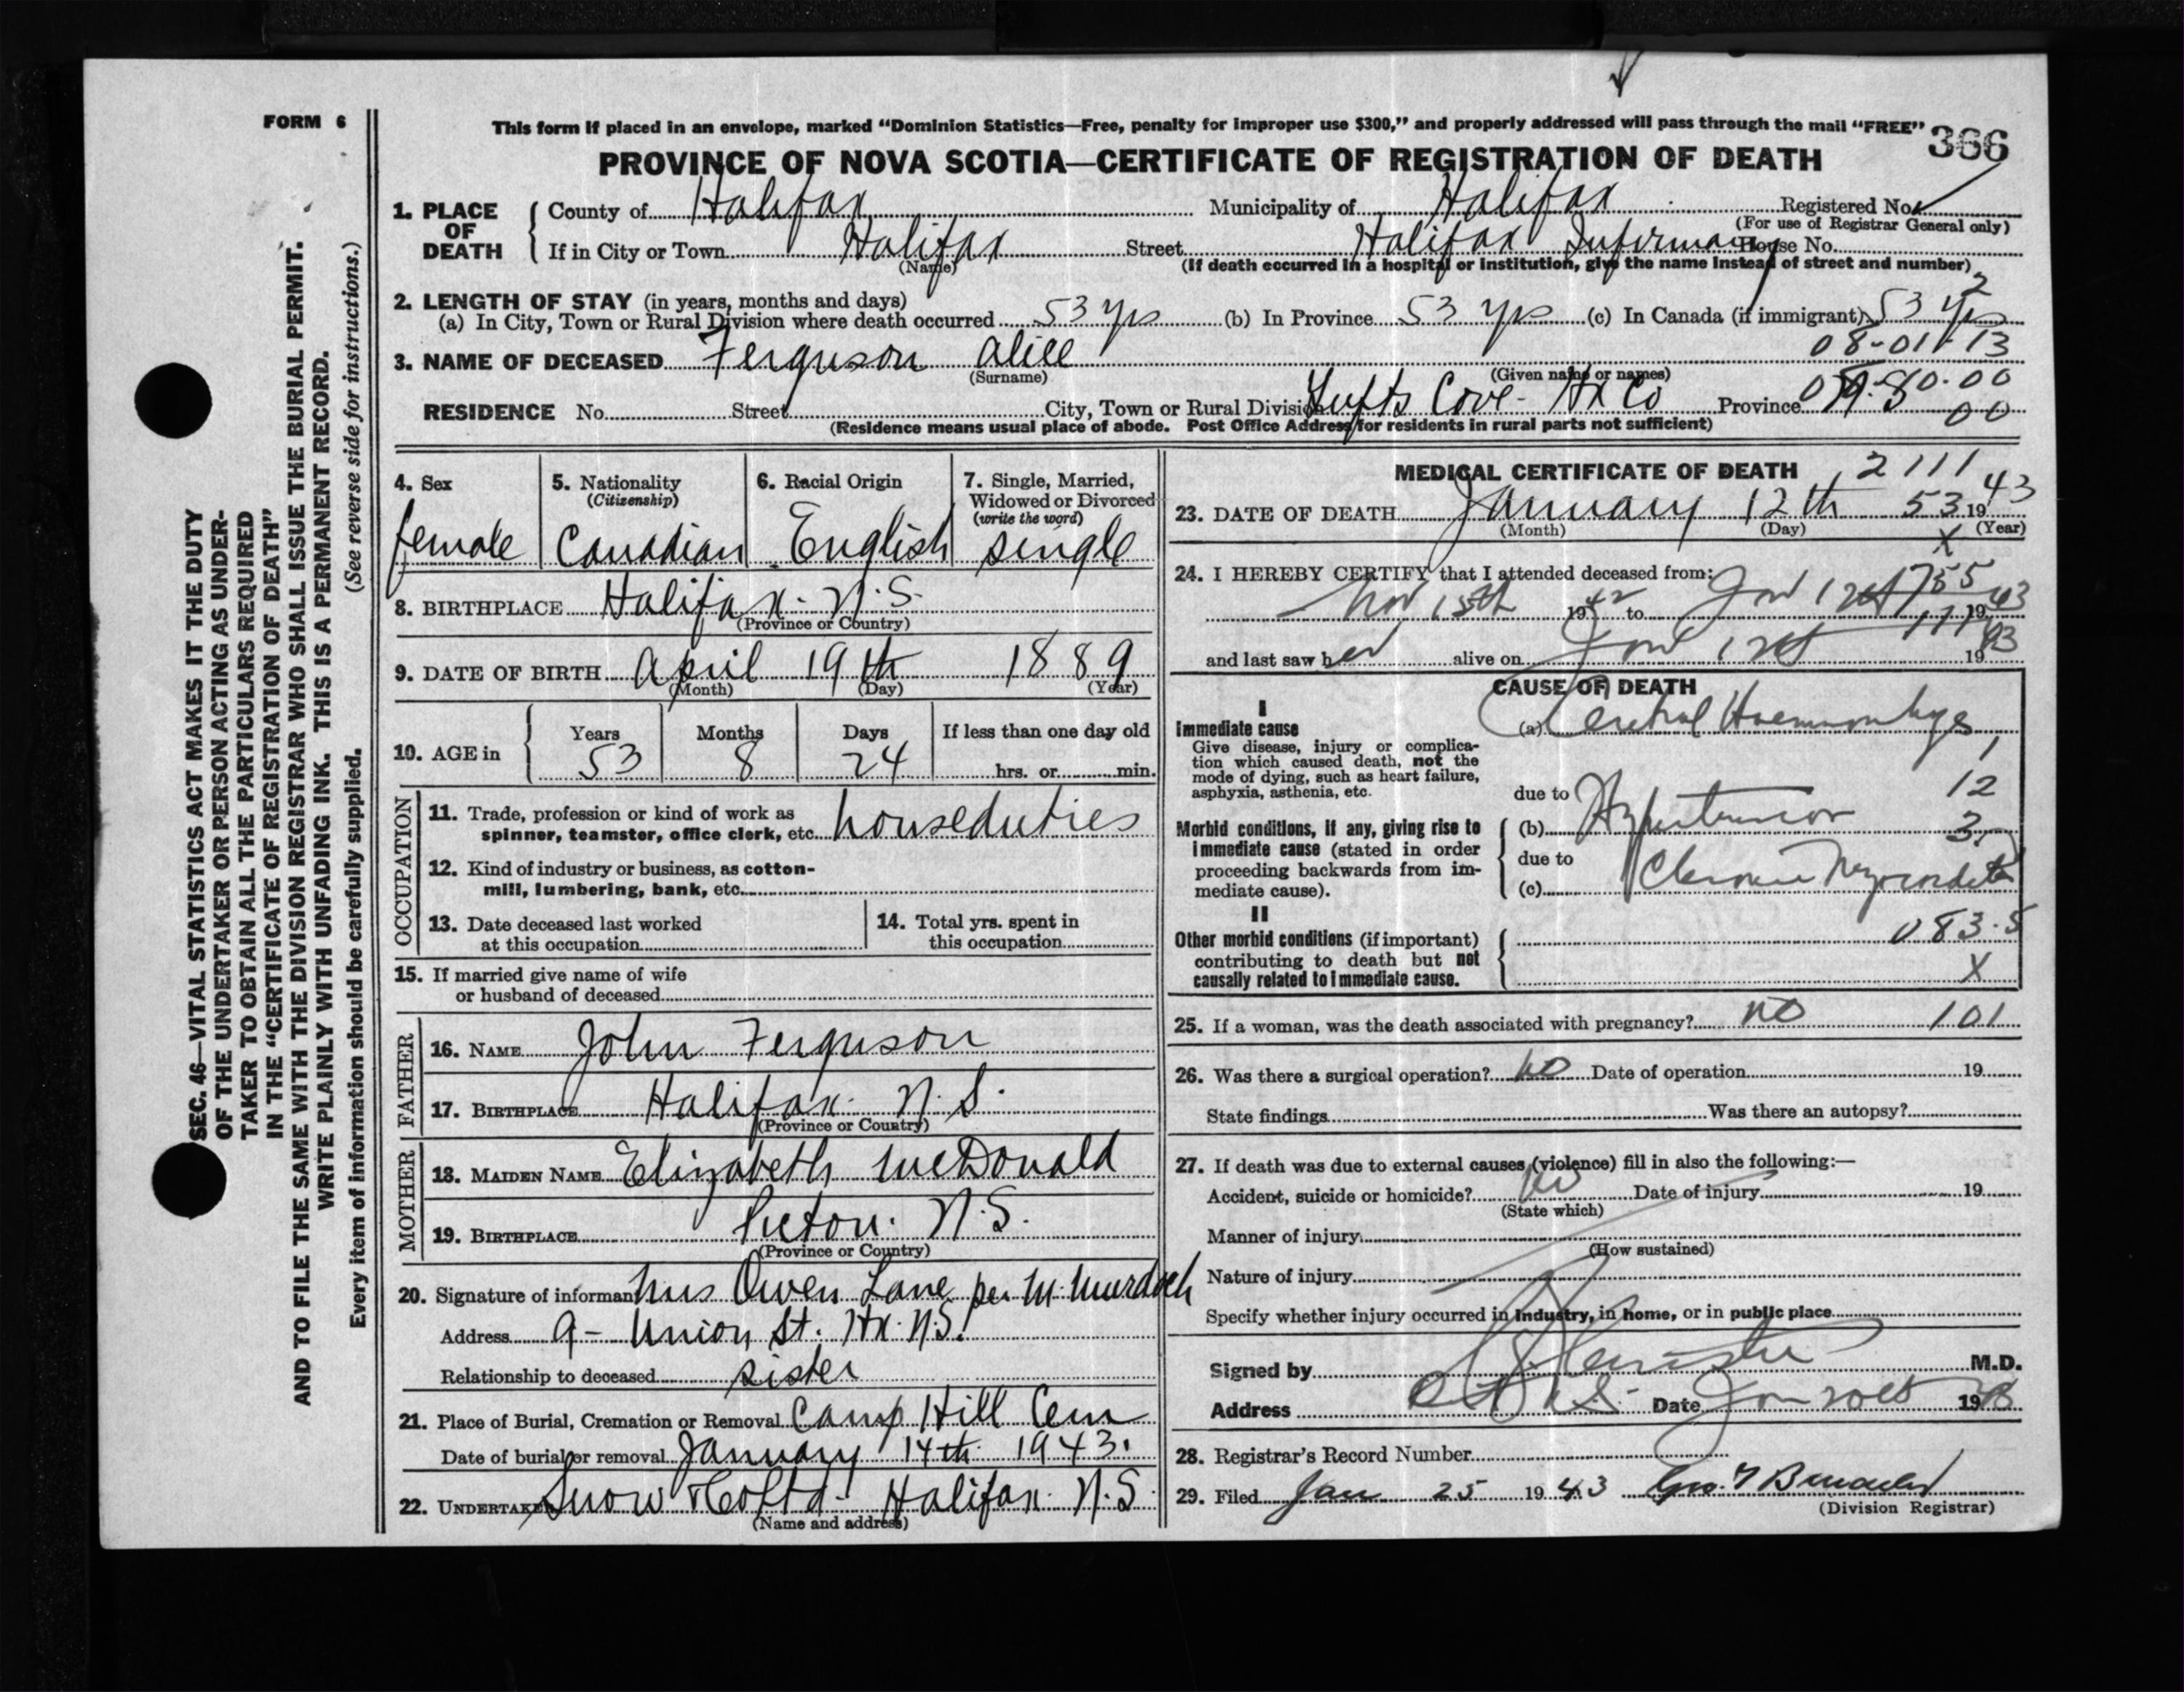 FORM 6
This form if placed in an envelope, marked “Dominion Statistics—Free, penalty for improper use $300,” and properly addressed will pass through the mail “FREE”
366
PROVINCE OF NOVA SCOTIA—CERTIFICATE OF REGISTRATION OF DEATH
1. PLACE OF DEATH
County of Halifax Municipality of Halifax Registered No.
(For use of Registrar General only)
If in City or Town Halifax Street Halifax Infirmary House No.
(Name) (If death occurred in a hospital or institution, give the name instead of street and number)
2. LENGTH OF STAY (in years, months and days) 2
(a) In City, Town or Rural Division where death occurred 53 yrs (b) In Province 53 yrs (c) In Canada (if immigrant) 53 yrs
08-01-13
3. NAME OF DECEASED Ferguson Alice
(Surname) (Given name or names)
RESIDENCE No. Street City, Town or Rural Division Tufts Cove - Hx Co Province
00
(Residence means usual place of abode. Post Office Address for residents in rural parts not sufficient)
4. Sex
female
5. Nationality
(Citizenship)
Canadian
6. Racial Origin
English
7. Single, Married,
Widowed or Divorced
(write the word)
single
8. BIRTHPLACE Halifax. N.S.
(Province or Country)
9. DATE OF BIRTH April 19th 1889
(Month) (Day) (Year)
10. AGE in
Years Months Days If less than one day old
53 8 24 hrs. or min.
OCCUPATION
11. Trade, profession or kind of work as
spinner, teamster, office clerk, etc. houseduties
12. Kind of industry or business, as cotton-
mill, lumbering, bank, etc.
13. Date deceased last worked
at this occupation
14. Total yrs. spent in
this occupation
15. If married give name of wife
or husband of deceased
FATHER
16. NAME John Ferguson
17. BIRTHPLACE Halifax. N.S.
(Province or Country)
MOTHER
18. MAIDEN NAME Elizabeth McDonald
19. BIRTHPLACE Pictou. N.S.
(Province or Country)
20. Signature of informant Mrs Owen Lane per M. Murdoch
Address 9 - Union St. Hx. N.S.
Relationship to deceased sister
21. Place of Burial, Cremation or Removal Camp Hill Cem
Date of burial or removal January 14th 1943.
22. UNDERTAKER Snow & Co Ltd - Halifax. N.S.
(Name and address)
MEDICAL CERTIFICATE OF DEATH 2111
23. DATE OF DEATH January 12th 53 1943
(Month) (Day) (Year)
X
24. I HEREBY CERTIFY that I attended deceased from:
Nov 15th 1942 to Jan 12th 1943
and last saw her alive on Jan 12th 1943
CAUSE OF DEATH
I
Immediate cause
Give disease, injury or complica-
tion which caused death, not the
mode of dying, such as heart failure,
asphyxia, asthenia, etc.
(a) Cerebral Haemorrhage
1
due to 12
Morbid conditions, if any, giving rise to
immediate cause (stated in order
proceeding backwards from im-
mediate cause).
(b) Hypertension 3
due to
(c) Chronic Myocarditis
II
Other morbid conditions (if important)
contributing to death but not
causally related to immediate cause.
083.5
X
25. If a woman, was the death associated with pregnancy? no 101
26. Was there a surgical operation? no Date of operation 19
State findings Was there an autopsy?
27. If death was due to external causes (violence) fill in also the following:—
Accident, suicide or homicide? no Date of injury 19
(State which)
Manner of injury
(How sustained)
Nature of injury
Specify whether injury occurred in industry, in home, or in public place
Signed by M.D.
Address Date Jan 20th 1943
28. Registrar's Record Number
29. Filed Jan 25 1943
(Division Registrar)
SEC. 46—VITAL STATISTICS ACT MAKES IT THE DUTY
OF THE UNDERTAKER OR PERSON ACTING AS UNDER-
TAKER TO OBTAIN ALL THE PARTICULARS REQUIRED
IN THE “CERTIFICATE OF REGISTRATION OF DEATH”
AND TO FILE THE SAME WITH THE DIVISION REGISTRAR WHO SHALL ISSUE THE BURIAL PERMIT.
WRITE PLAINLY WITH UNFADING INK. THIS IS A PERMANENT RECORD.
Every item of information should be carefully supplied. (See reverse side for instructions.)